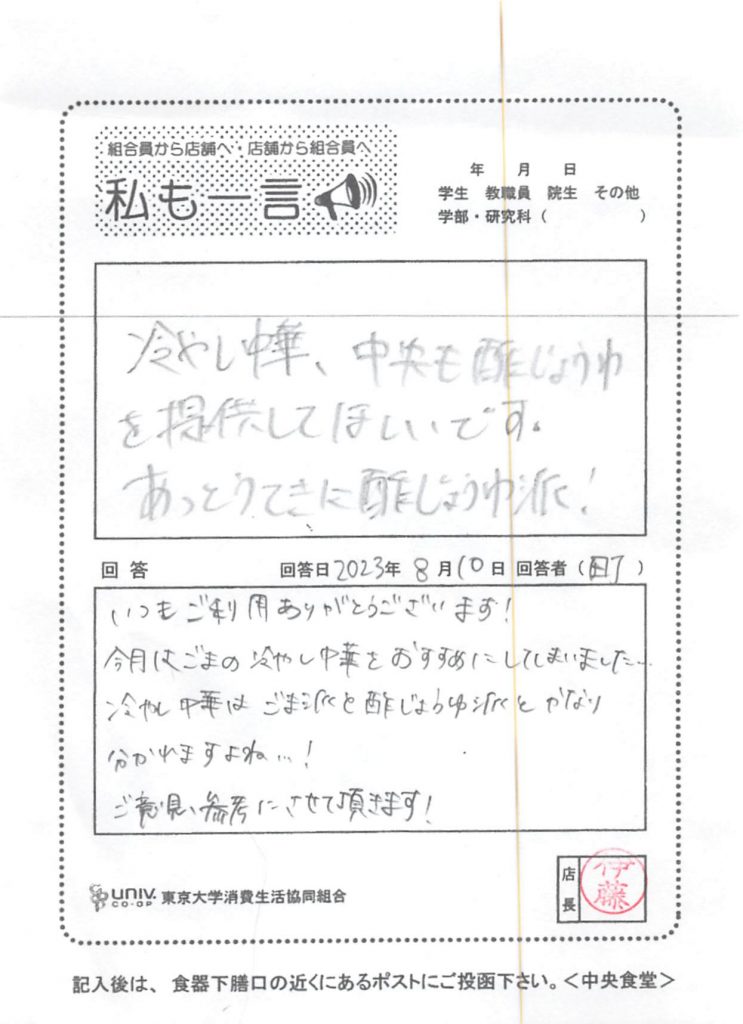 組合員から店舗へ・店舗から組合員へ
私も一言
年 月 日
学生 教職員 院生 その他
学部・研究科（ ）
冷やし中華、中央も酢じょうゆ
を提供してほしいです。
あっとうてきに酢じょうゆ派！
回答 回答日2023年 8月10日 回答者（町）
いつもご利用ありがとうございます！
今月はごまの冷やし中華をおすすめにしてしまいました…
冷やし中華はごま派と酢じょうゆ派とかなり
分かれますよね…！
ご意見、参考にさせて頂きます！
UNIV. CO-OP 東京大学消費生活協同組合
店長 伊藤
記入後は、食器下膳口の近くにあるポストにご投函下さい。＜中央食堂＞